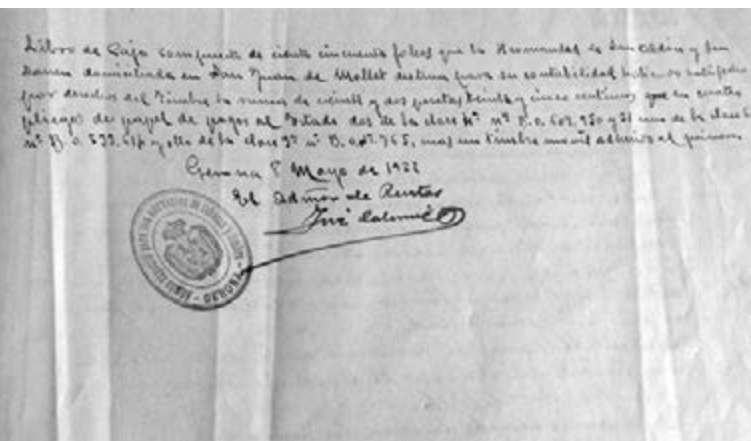 Libro de Caja compuesto de ciento cincuenta folios que la Hermandad de San Abdón y San
Senén domiciliada en San Juan de Mollet destina para su contabilidad habiendo satisfecho
por derechos del Timbre la suma de veinte y dos pesetas treinta y cinco céntimos que en cuatro
pliegos de papel de pagos al Estado dos de la clase nº y uno de la clase
nº y otro de la clase 9ª nº B. mas un timbre movil adherido al primero.
Gerona 8 Mayo de 1922
El Admor de Rentas
José
GERONA